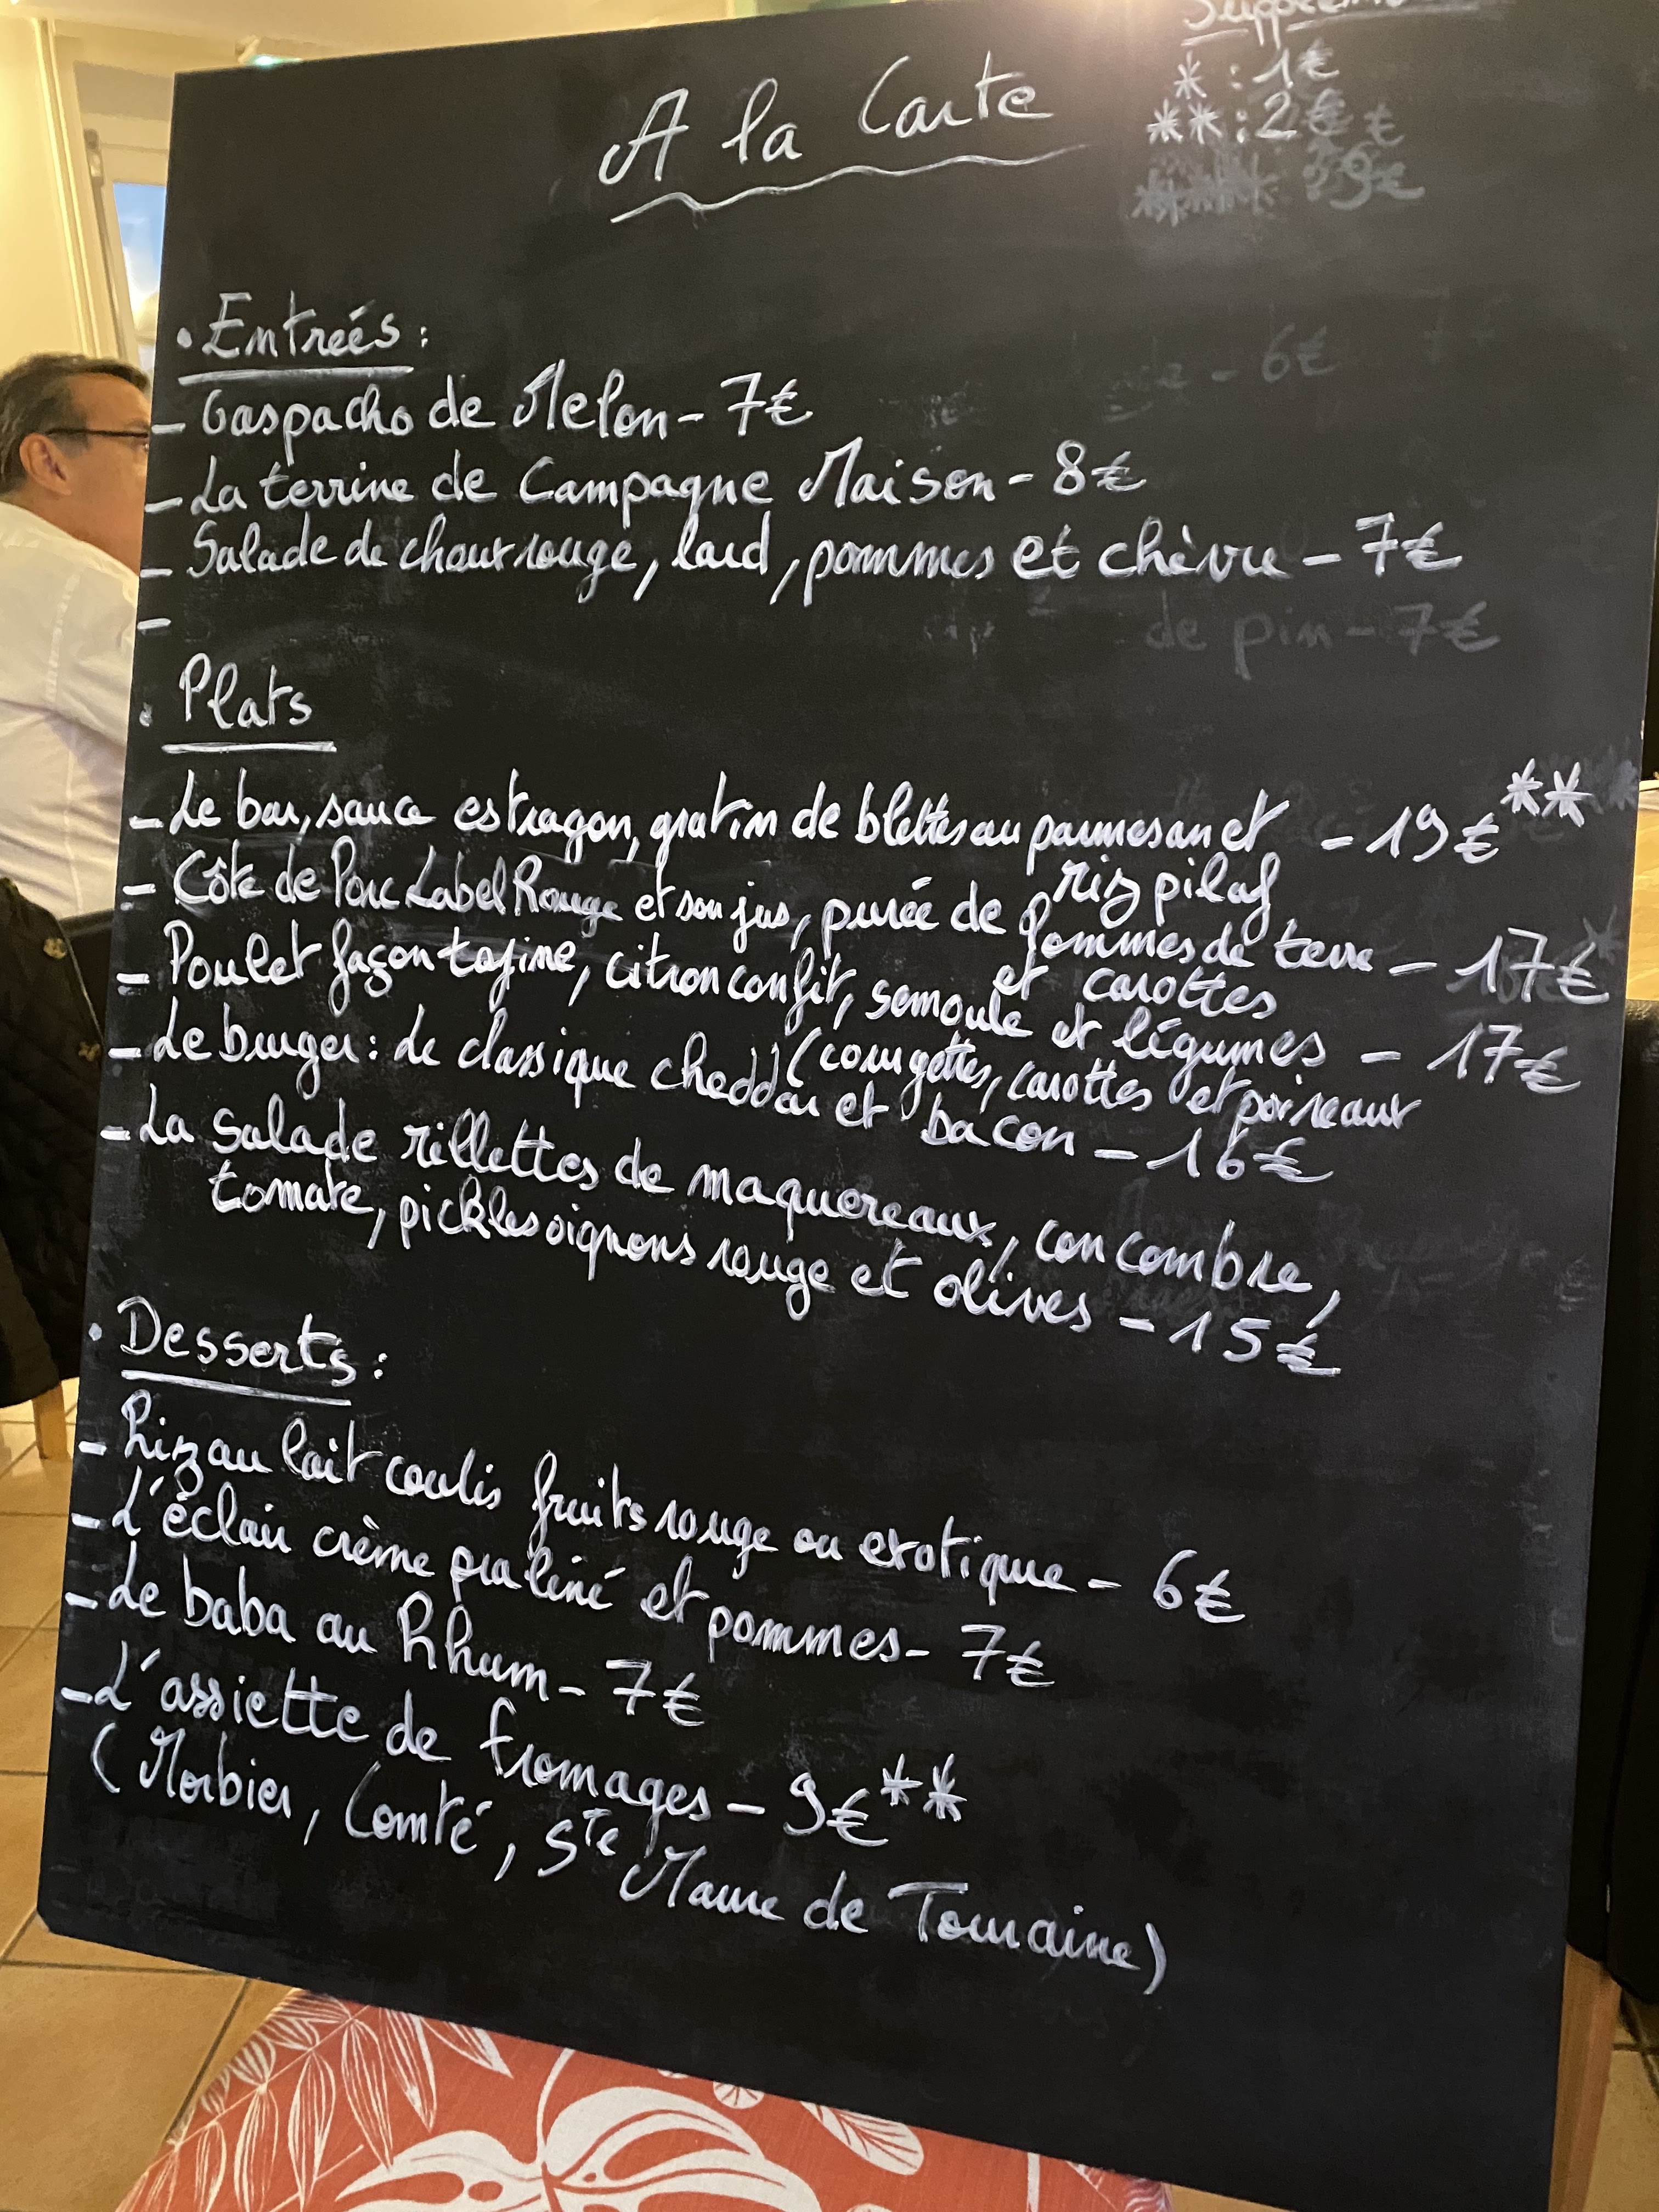 A la Carte
* : 1€
** : 2€
• Entrées :
- Gaspacho de Melon - 7€
- La terrine de Campagne Maison - 8€
- Salade de choux rouge, lard, pommes et chèvre - 7€
de pin - 7€
-
• Plats
- Le bar, sauce estragon, gratin de blettes au parmesan et - 19€**
riz pilaf
- Côte de Porc Label Rouge et son jus, purée de pommes de terre - 17€
et carottes
- Poulet façon tajine, citron confit, semoule et légumes - 17€
(courgettes, carottes et poireaux
- Le burger : le classique cheddar et bacon - 16€
- La salade rillettes de maquereaux, concombre,
tomate, pickles oignons rouge et olives - 15€
• Desserts :
- Riz au lait coulis fruits rouge ou exotique - 6€
- L'éclair crème praliné et pommes - 7€
- Le baba au Rhum - 7€
- L'assiette de fromages - 9€**
(Morbier, Comté, Ste Maure de Touraine)